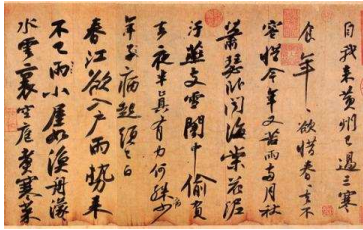 自我来黄州已過三寒
食年〻欲惜春〻去不
容惜今年又苦雨兩月秋
蕭瑟卧聞海棠花泥
汙燕支雪闇中偷負
去夜半真有力何殊病少
年子病起頭已白
春江欲入戶雨勢来
不已雨小屋如漁舟濛〻
水雲裏空庖煮寒菜